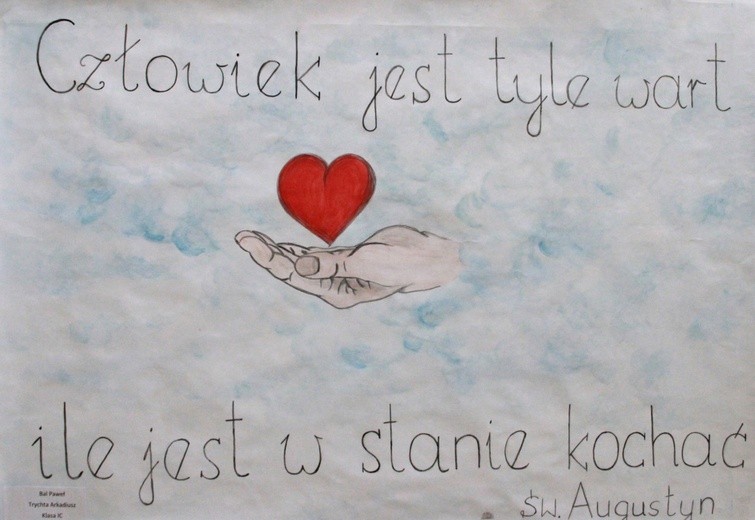 Człowiek jest tyle wart
ile jest w stanie kochać
św. Augustyn
Bal Paweł
Trychta Arkadiusz
Klasa IC